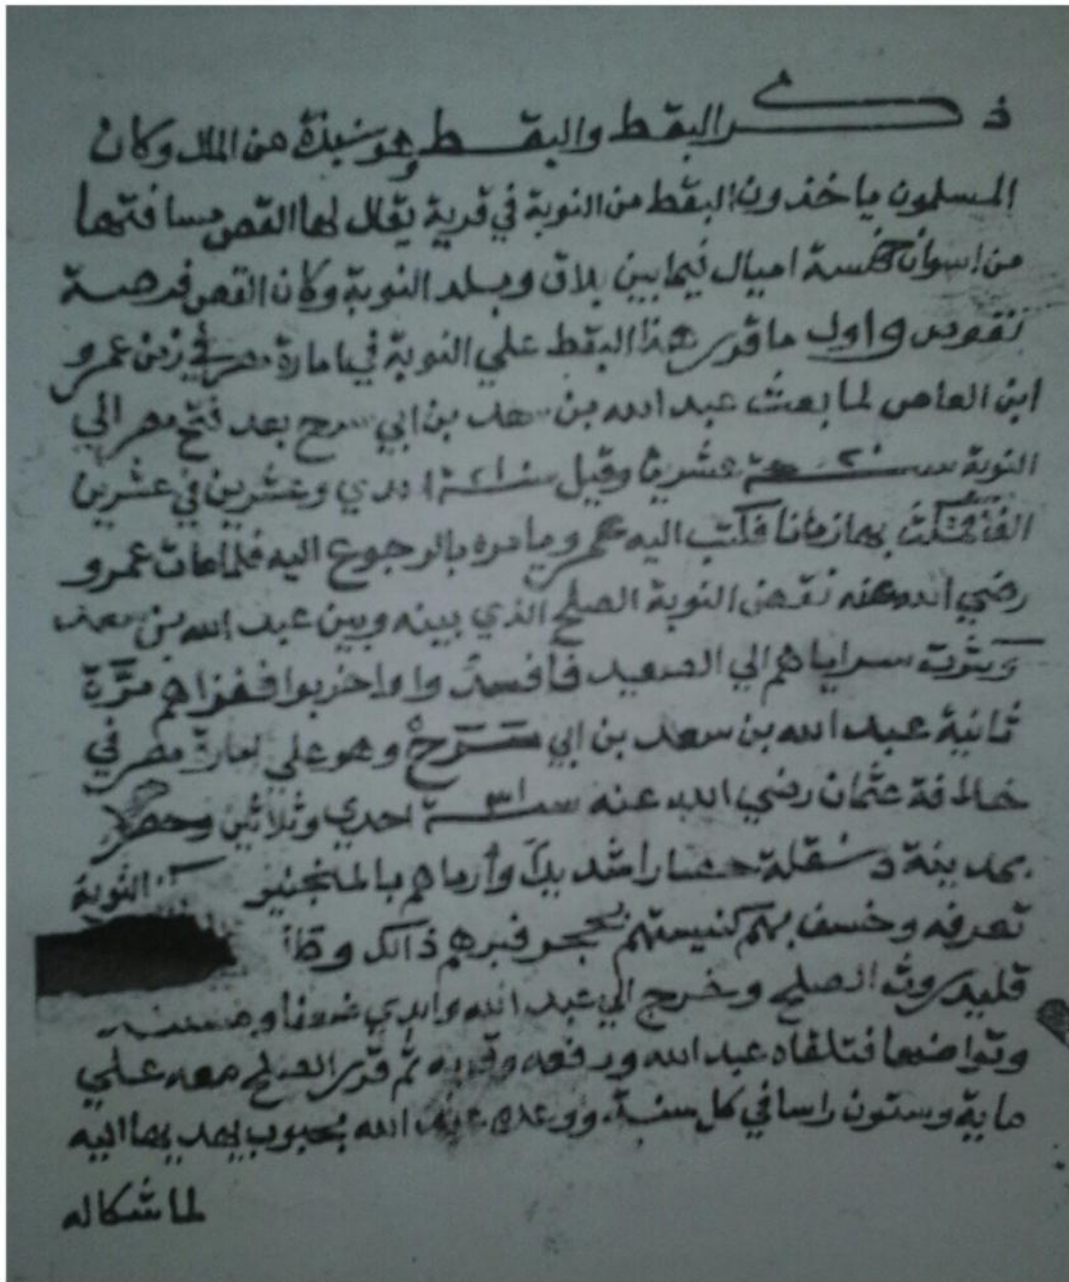 ذكر البقط والبقط وهو نبذة من المال وكان
المسلمون ياخذون البقط من النوبة في قرية يقال لها القصر مسافتها
من اسوان خمسة اميال فيما بين بلاق وبلد النوبة وكان القصر فرضة
لقوص واول ما قرر هذا البقط علي النوبة في امارة عمرو
ابن العاص لما بعث عبد الله بن سعد بن ابي سرح بعد فتح مصر الي
النوبة سنة ٢٠ عشرين وقيل سنة ٢١ احدي وعشرين في عشرين
الفا فمكث بها زمانا فكتب اليه عمرو يامره بالرجوع اليه فلما مات عمرو
رضي الله عنه نقض النوبة الصلح الذي بينه وبين عبد الله بن سعد
وكثرت سراياهم الي الصعيد فافسدوا واخربوا فغزاهم مرّة
ثانية عبد الله بن سعد بن ابي سَرَحْ وهو علي امارة مصر في
خلافة عثمان رضي الله عنه سنة ٣١ احدي وثلاثين وحصر
بمدينة دنقلة حصارا شديداً وأرماهم بالمنجنيق النوبة
تعرفه وخسف بهم كنيستهم بحجر فبرهم ذالك
قليدروث الصلح وخرج الي عبد الله وابدي ضعفا ومسكنة
وتواضعا فتلقاه عبد الله ورفعه وقربه ثم قرر الصلح معه علي
ماية وستون راسا في كل سنة ووعده عبد الله بحبوب يهديها اليه
لما شكا له